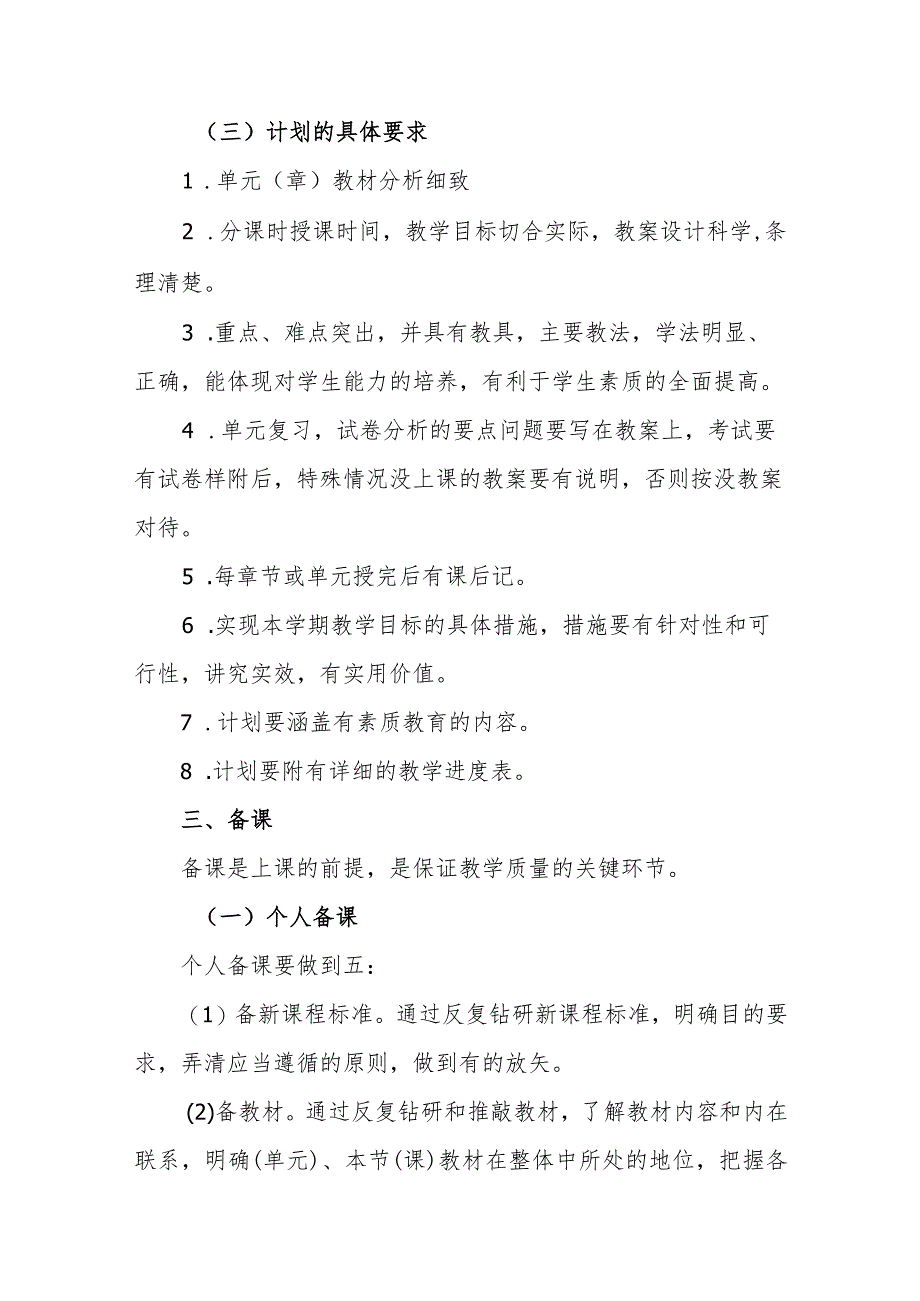 （三）计划的具体要求
1 .单元（章）教材分析细致
2 .分课时授课时间，教学目标切合实际，教案设计科学,条
理清楚。
3 .重点、难点突出，并具有教具，主要教法，学法明显、
正确，能体现对学生能力的培养，有利于学生素质的全面提高。
4 .单元复习，试卷分析的要点问题要写在教案上，考试要
有试卷样附后，特殊情况没上课的教案要有说明，否则按没教案
对待。
5 .每章节或单元授完后有课后记。
6 .实现本学期教学目标的具体措施，措施要有针对性和可
行性，讲究实效，有实用价值。
7 .计划要涵盖有素质教育的内容。
8 .计划要附有详细的教学进度表。
三、备课
备课是上课的前提，是保证教学质量的关键环节。
（一）个人备课
个人备课要做到五：
（1）备新课程标准。通过反复钻研新课程标准，明确目的要
求，弄清应当遵循的原则，做到有的放矢。
(2)备教材。通过反复钻研和推敲教材，了解教材内容和内在
联系，明确(单元)、本节(课)教材在整体中所处的地位，把握各